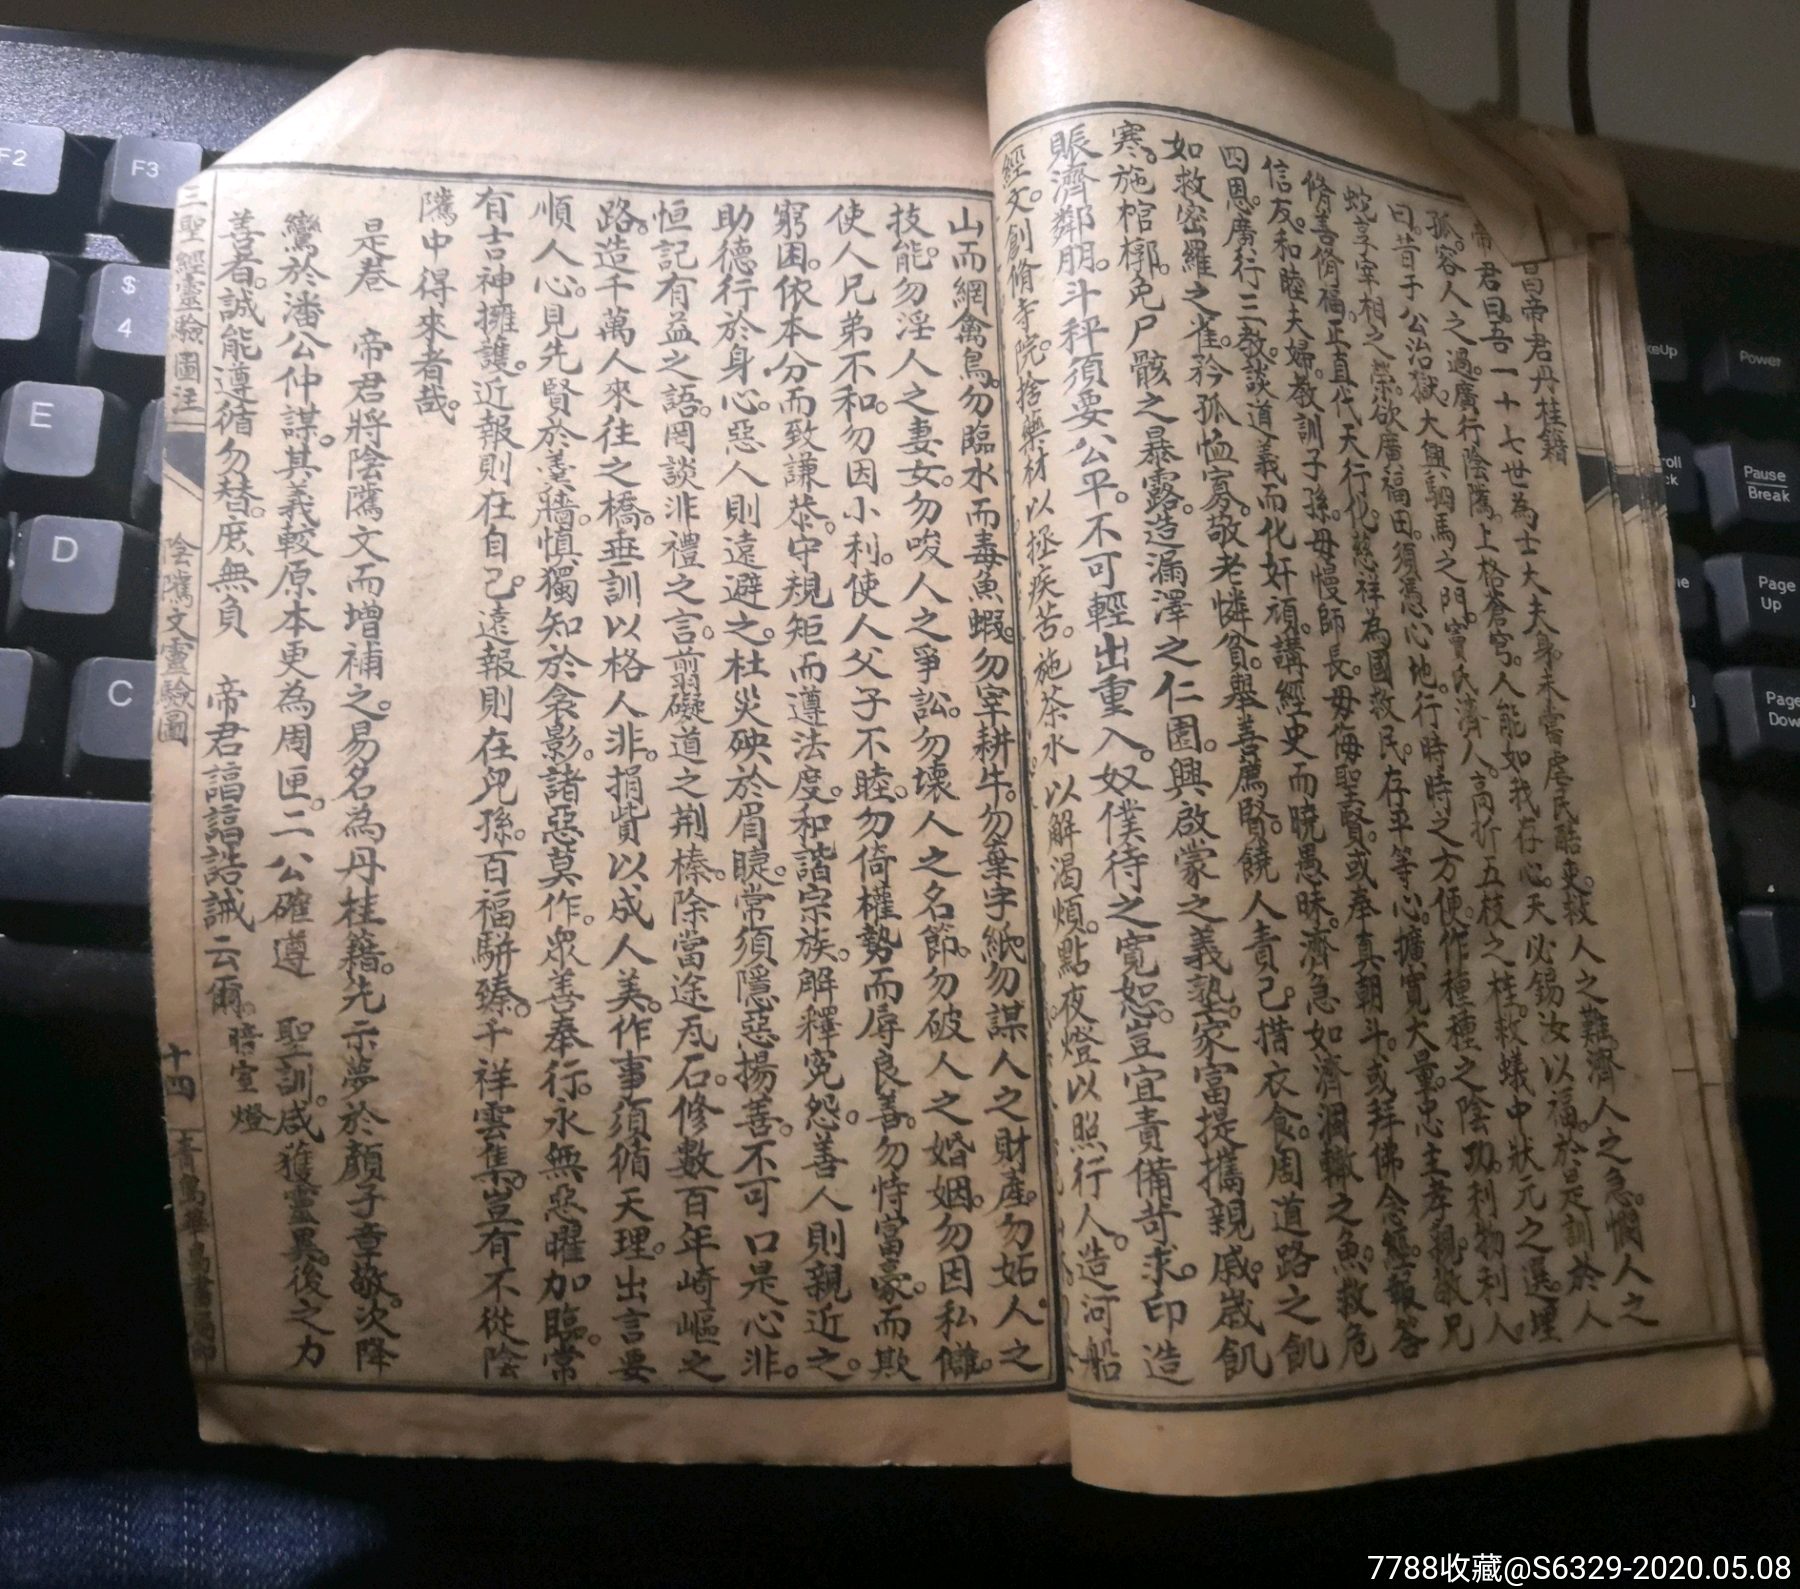 昌帝君丹桂籍
帝君曰。吾一十七世為士大夫身。未嘗虐民酷吏。救人之難。濟人之急。憫人之
孤。容人之過。廣行陰騭。上格蒼穹。人能如我存心。天必錫汝以福。於是訓於人
曰。昔于公治獄。大興駟馬之門。竇氏濟人。高折五枝之桂。救蟻中狀元之選。埋
蛇享宰相之榮。欲廣福田。須憑心地。行時時之方便。作種種之陰功。利物利人。
脩善脩福。正直代天行化。慈祥為國救民。存平等心。擴寬大量。忠主孝親。敬兄
信友。和睦夫婦。教訓子孫。毋慢師長。毋侮聖賢。或奉真朝斗。或拜佛念經。報答
四恩。廣行三教。談道義而化奸頑。講經史而曉愚昧。濟急如濟涸轍之魚。救危
如救密羅之雀。矜孤恤寡。敬老憐貧。舉善薦賢。饒人責己。措衣食。周道路之飢
寒。施棺槨。免尸骸之暴露。造漏澤之仁園。興啟蒙之義塾。家富提攜親戚。歲飢
賑濟鄰朋。斗秤須要公平。不可輕出重入。奴僕待之寬恕。豈宜責備苛求。印造
經文。創脩寺院。捨藥材以拯疾苦。施茶水以解渴煩。點夜燈以照行人。造河船
山而網禽鳥。勿臨水而毒魚蝦。勿宰耕牛。勿棄字紙。勿謀人之財產。勿妬人之
技能。勿淫人之妻女。勿唆人之爭訟。勿壞人之名節。勿破人之婚姻。勿因私讎。
使人兄弟不和。勿因小利。使人父子不睦。勿倚權勢而辱良善。勿恃富豪而欺
窮困。依本分而致謙恭。守規矩而遵法度。和諧宗族。解釋冤怨。善人則親近之。
助德行於身心。惡人則遠避之。杜災殃於眉睫。常須隱惡揚善。不可口是心非。
恒記有益之語。罔談非禮之言。翦礙道之荆榛。除當途瓦石。修數百年崎嶇之
路。造千萬人來往之橋。垂訓以格人非。捐貲以成人美。作事須循天理。出言要
順人心。見先賢於羹牆。慎獨知於衾影。諸惡莫作。眾善奉行。永無惡曜加臨。常
有吉神擁護。近報則在自己。遠報則在兒孫。百福駢臻。千祥雲集。豈有不從陰
騭中得來者哉。
是卷　帝君將陰騭文而增補之。易名為丹桂籍。先示夢於顏子章敬。次降
鸞於潘公仲謀。其義較原本更為周匝。二公確遵　聖訓。咸獲靈異。後之力
善者。誠能遵循勿替。庶無負　帝君諄諄誥誡云爾。暗室燈
三聖經靈驗圖注
陰騭文靈驗圖
十四